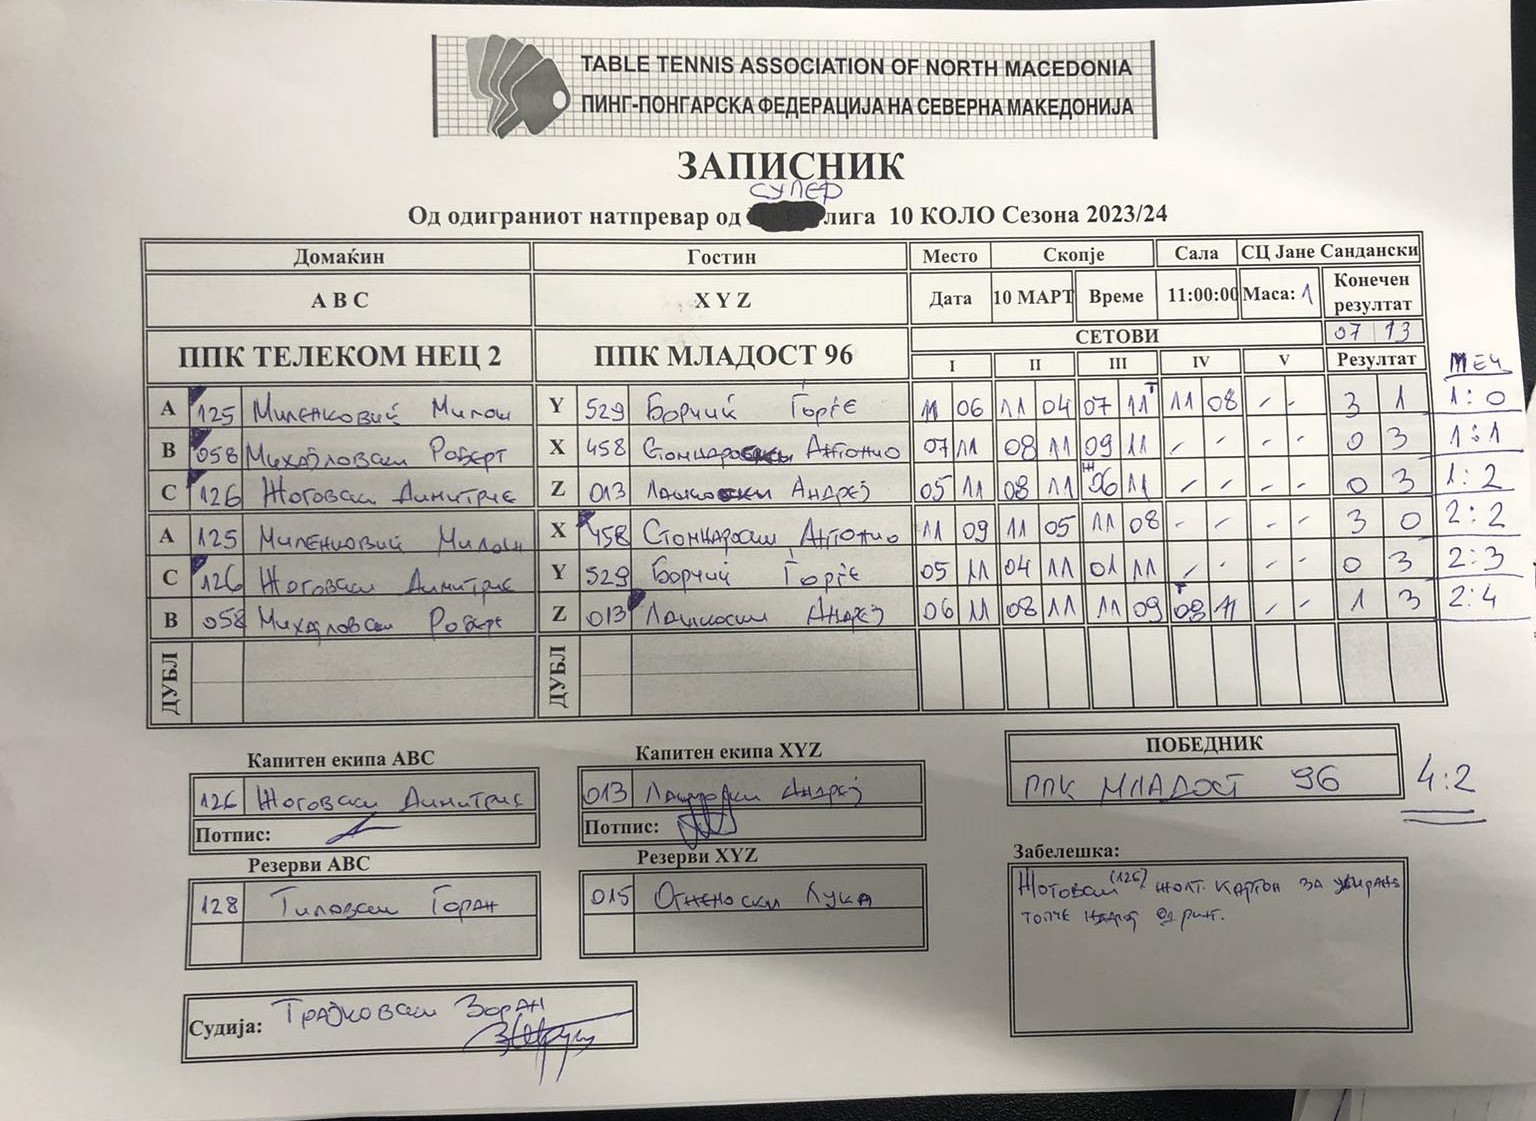 TABLE TENNIS ASSOCIATION OF NORTH MACEDONIA
ПИНГ-ПОНГАРСКА ФЕДЕРАЦИЈА НА СЕВЕРНА МАКЕДОНИЈА
ЗАПИСНИК
СУПЕР
Од одиграниот натпревар од лига 10 КОЛО Сезона 2023/24
Домаќин Гостин Место Скопје Сала СЦ Јане Сандански
А В С X Y Z Дата 10 МАРТ Време 11:00:00 Маса: 1 Конечен резултат
СЕТОВИ 07 13
ППК ТЕЛЕКОМ НЕЦ 2 ППК МЛАДОСТ 96 I II III IV V Резултат МЕЧ
A 125 Миленковиќ Милош Y 529 Борчиќ Ѓорѓе 11 06 11 04 07 11 T 11 08 - - 3 1 1:0
B 058 Михајловски Роберт X 458 Стоиџаровски Антонио 07 11 08 11 09 11 - - - - 0 3 1:1
C 126 Жоговски Димитрие Z 013 Лашкоски Андреј 05 11 08 11 Ж 06 11 - - - - 0 3 1:2
A 125 Миленковиќ Милош X 458 Антонио 11 09 11 05 11 08 - - - - 3 0 2:2
C 126 Жоговски Димитрие Y 529 Борчиќ Ѓорѓе 05 11 04 11 01 11 - - - - 0 3 2:3
B 058 Михајловски Роберт Z 013 Лашкоски Андреј 06 11 08 11 11 09 T 08 11 - - 1 3 2:4
ДУБЛ ДУБЛ
Капитен екипа ABC Капитен екипа XYZ ПОБЕДНИК
126 Жоговски Димитрие 013 Лашкоски Андреј ППК МЛАДОСТ 96 4:2
Потпис: Потпис:
Резерви ABC Резерви XYZ Забелешка:
128 Тиловски Горан 015 Огненоски Лука
Жоговски (126) жолт картон за
топче од ринг.
Судија: Трајковски Зоран